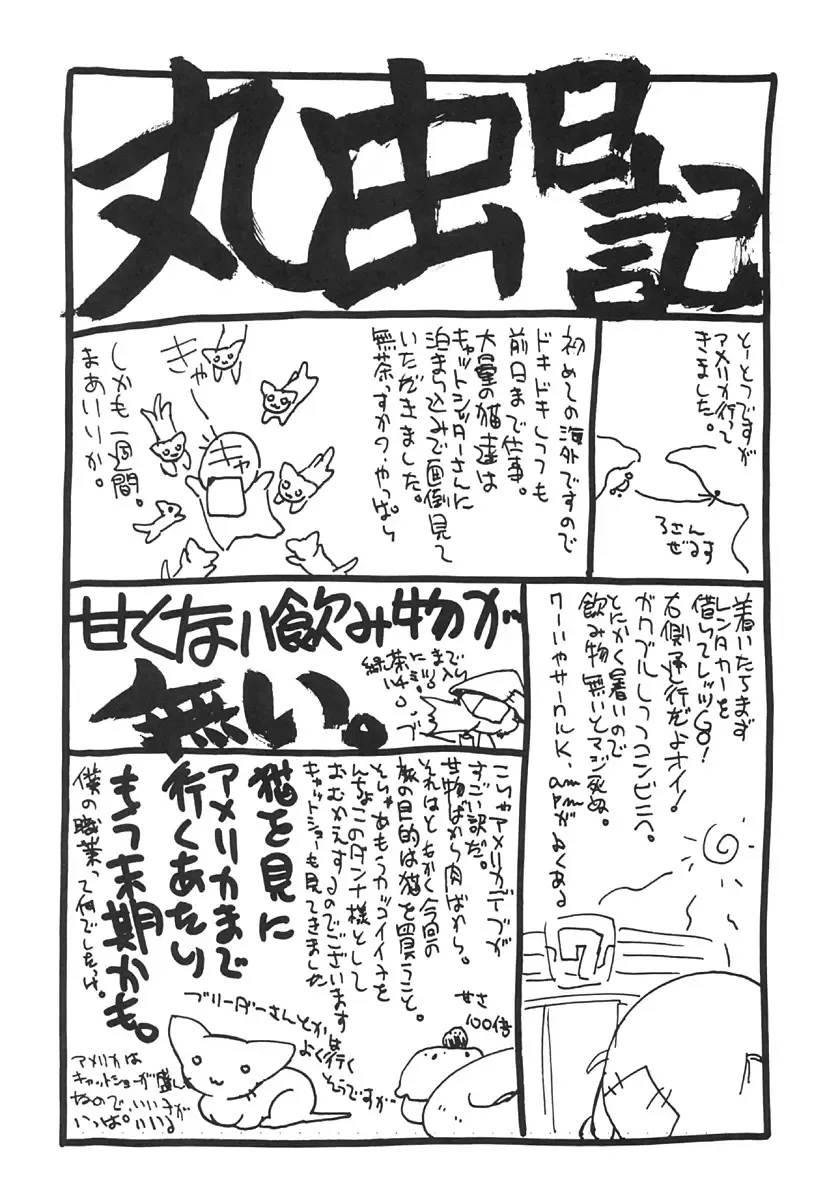 丸虫日記
とーとつですが
アメリカ行って
きました。
ろさん
ぜるす
初めての海外ですので
ドキドキしつつも
前日まで仕事。
大量の猫達は
キャットシッターさんに
泊まり込みで面倒見て
いただきました。
無茶っすか?やっぱり
きゃー
キャ
しかも一週間。
まあいいか。
着いたらまず
レンタカーを
借りてレッツGO!
右側通行だよオイ!
ガクブルしつつコンビニへ。
とにかく暑いので
飲み物無いとマジ死ぬ。
7-11やサークルK、am
pmがよくある
7
甘くない飲み物が
無い。
緑茶にまで
ハチミツ入り
こりゃアメリカデブが
すごい訳だ。
甘物ばかり肉ばかり。
それはともかく今回の
旅の目的は猫を買うこと。
そりゃあもうカッコイイネを
んちょこのダンナ様として
おむかえするのでございます
キャットショーも見てきました
猫を見に
アメリカまで
行くあたり
もう末期かも。
僕の職業って何でしたっけ。
甘さ
100倍
ブリーダーさんとかは
よく行く
そうですが
アメリカは
キャットショーが盛んで
なので、いいネコが
いっぱいいる